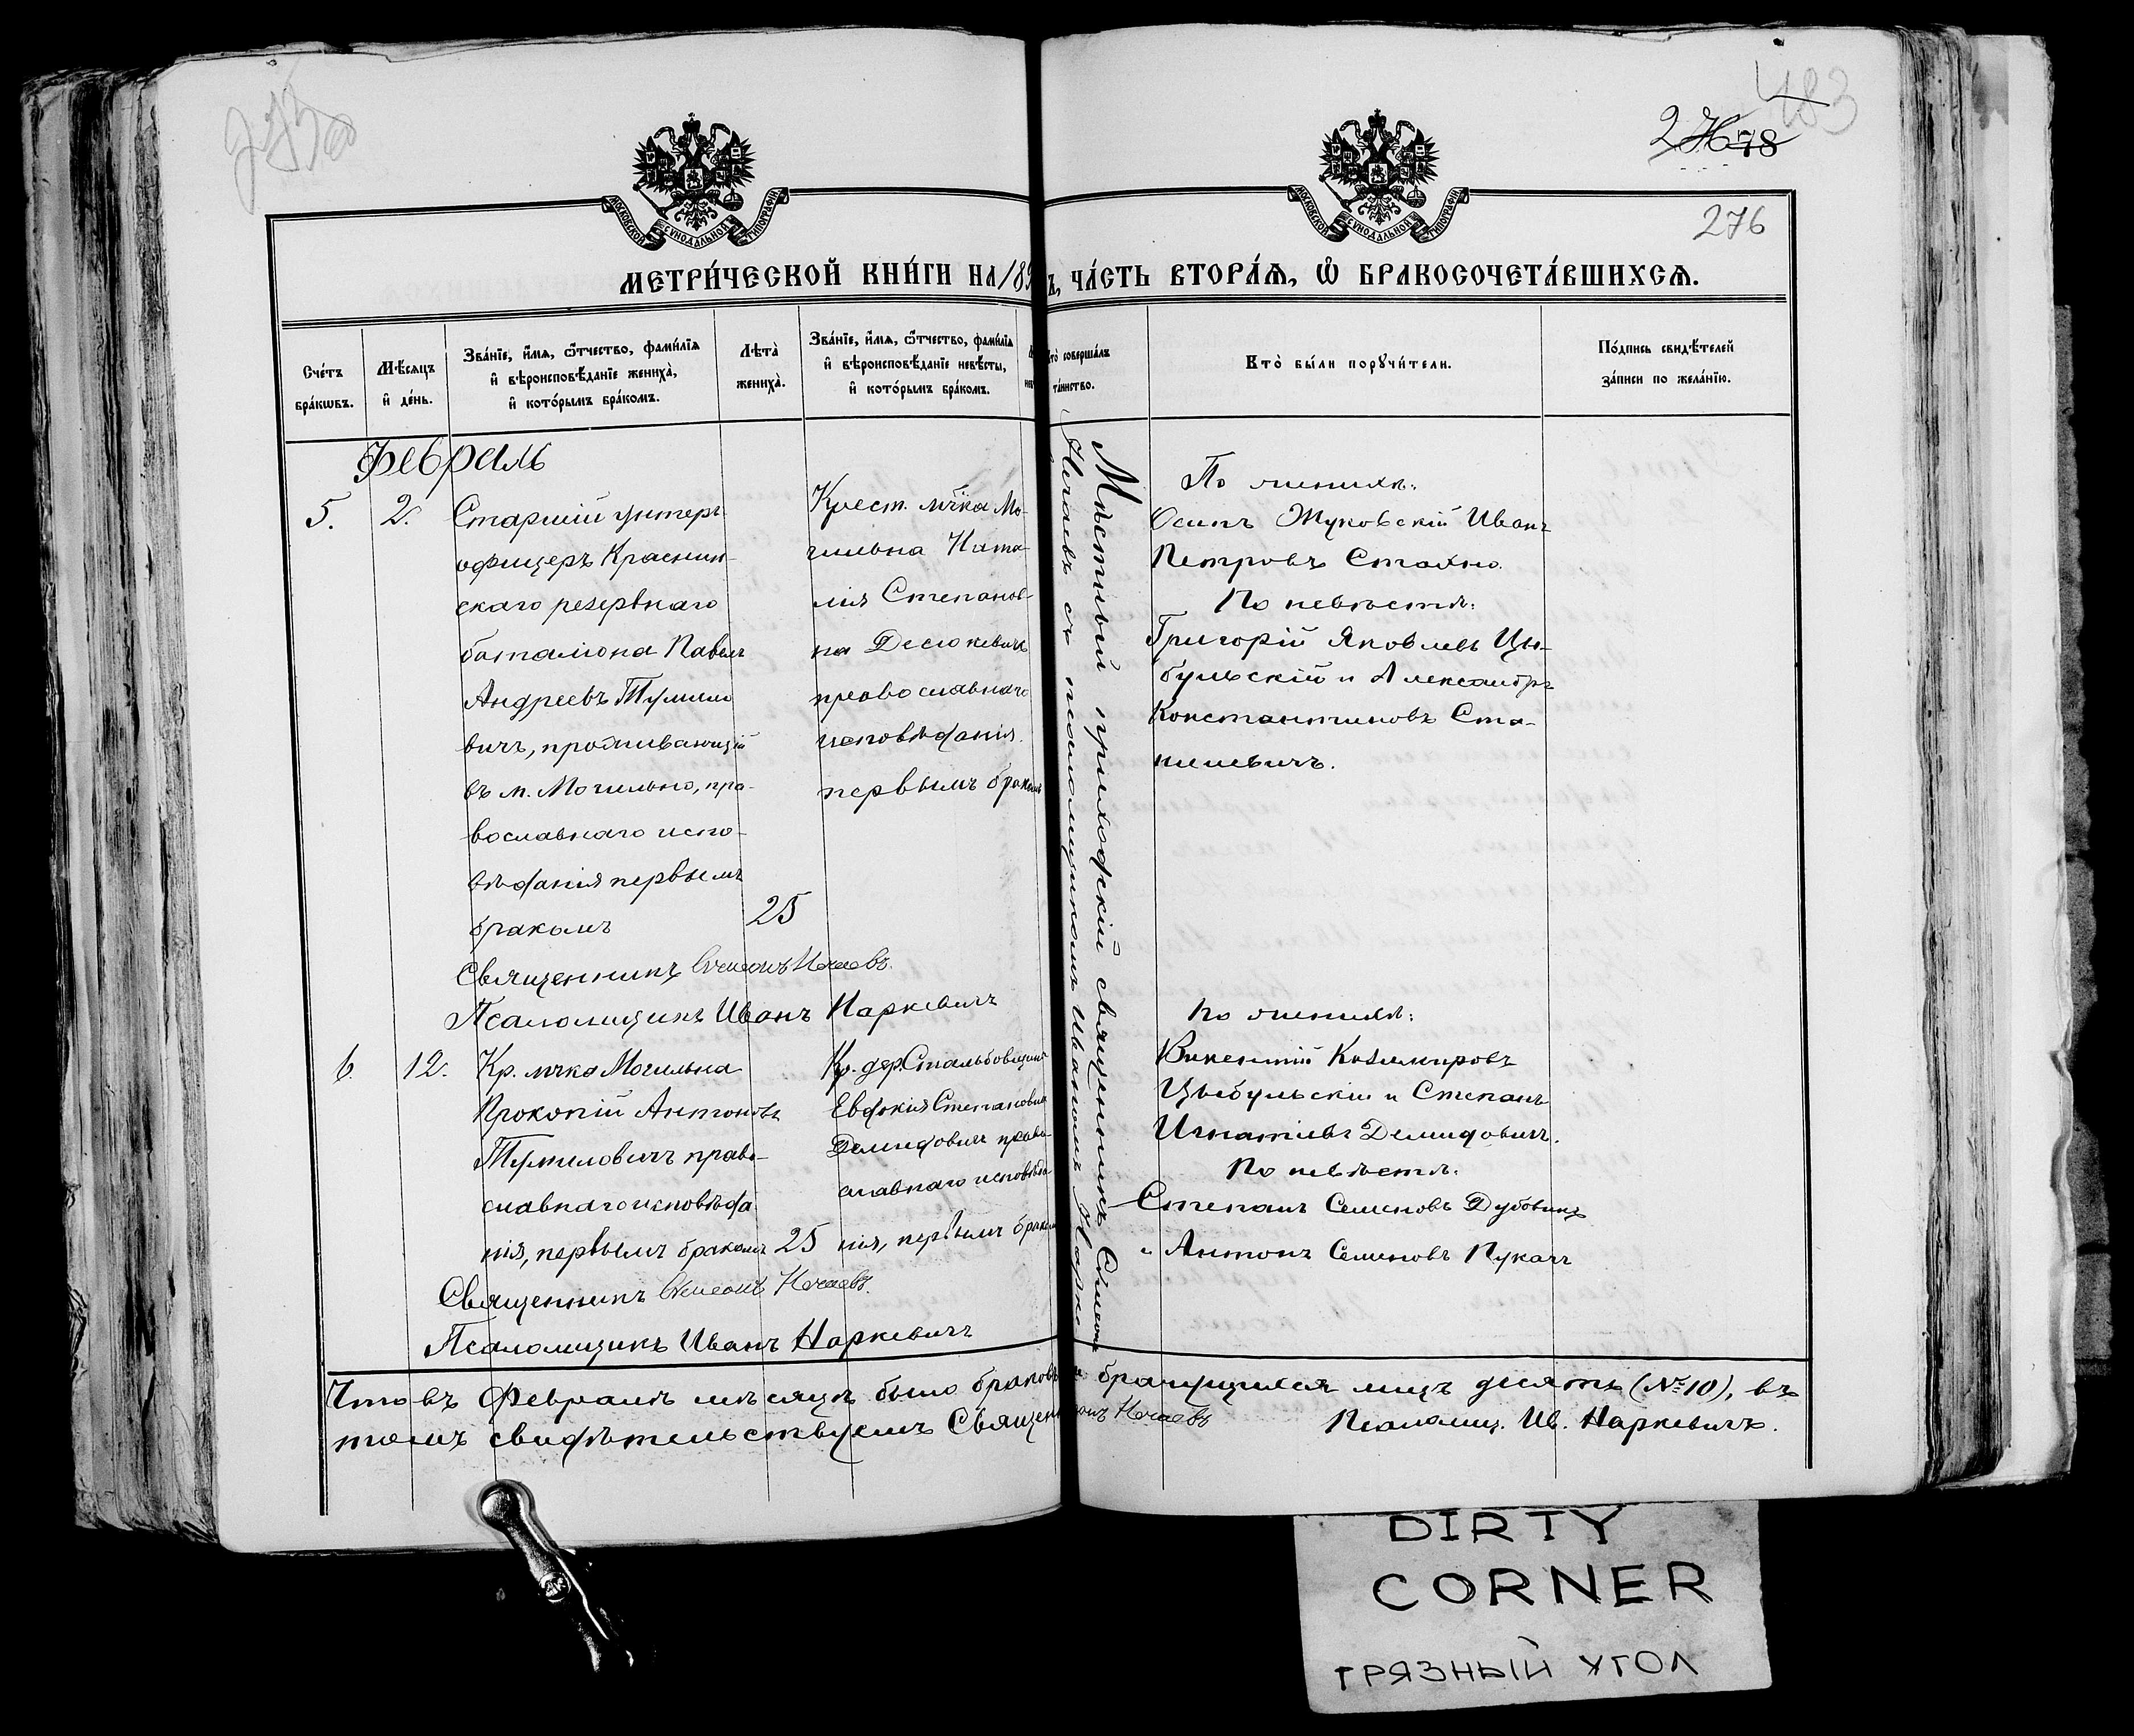 483
276
МЕТРИ́ЧЕСКОЙ КНИ́ГИ НА 189
Ъ, ЧА́СТЬ ВТОРА́Ѧ, Ѿ БРАКОСОЧЕТА́ВШИХСѦ.
МОСКОВСКОЙ СѴНОДАЛЬНОЙ ТИПОГРАФІИ
МОСКОВСКОЙ СѴНОДАЛЬНОЙ ТИПОГРАФІИ
Сче́тъ бра́кѡвъ.
Мѣ́сяцъ и҆ де́нь.
Зва́нїе, и҆́мѧ, ѻ҆́тчество, фами́лїѧ
и҆ вѣроисповѣ́данїе жениха̀,
и҆ кото́рымъ бра́комъ.
Лѣта̀ жениха̀.
Зва́нїе, и҆́мѧ, ѻ҆́тчество, фами́лїѧ
и҆ вѣроисповѣ́данїе невѣ́сты,
и҆ кото́рымъ бра́комъ.
Кто̀ соверша́лъ та́инство.
Кто̀ бы́ли порꙋчи́тели.
По́дпись свидѣ́телей
за́писи по жела́нїю.
Февраль
5.
2.
Старшій унтеръ
офицеръ Краснин-
скаго резервнаго
баталіона Павелъ
Андреевъ Тумило
вичъ, проживающій
въ м. Могильно, пра-
вославнаго испо-
вѣданія первымъ
бракомъ
25
Крест. м҃чка Мо-
гильна Ната-
лія Степанов-
на Десюкевичъ
православнаго
исповѣданія
первымъ бракомъ
Мѣстный приходскій священникъ Симеонъ
Нечаевъ съ псаломщикомъ Иваномъ Нарке
По женихѣ:
Осипъ Жуковскій Иванъ
Петровъ Стахно.
По невѣстѣ:
Григорій Яковлевъ Цы-
бульскій и Александръ
Константиновъ Ста-
нилевичъ.
Священникъ Симеонъ Нечаевъ.
Псаломщикъ Иванъ Наркевичъ
6.
12.
Кр. м҃чка Могильна
Прокопій Антоновъ
Тумиловичъ право-
славнаго исповѣда
нія, первымъ бракомъ
25
Кр. дер. Стальбовщина
Евдокія Степановна
Демидовичъ право-
славнаго исповѣда
нія, первымъ бракомъ
По женихѣ:
Викентій Казимировъ
Цыбульскій и Степанъ
Игнатіевъ Демидовичъ.
По невѣстѣ:
Степанъ Семеновъ Дубовикъ
и Антонъ Семеновъ Пукачъ
Священникъ Симеонъ Нечаевъ.
Псаломщикъ Иванъ Наркевичъ
Что въ Февралѣ мѣсяцѣ было браковъ брачущихся лицъ десять (№ 10), въ
томъ свидѣтельствуемъ Священ Нечаевъ Псаломщ. Ив. Наркевичъ.
DIRTY
CORNER
ГРЯЗНЫЙ УГОЛ